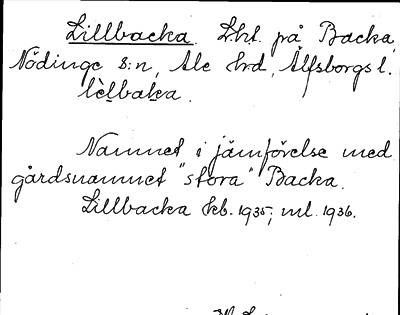 Lillbacka. Lht. på Backa,
Nödinge s:n, Ale hrd, Älfsborgs l.
lèlbaka.
Namnet i jämförelse med
gårdsnamnet "stora" Backa.
Lillbacka kb. 1935; ml. 1936.